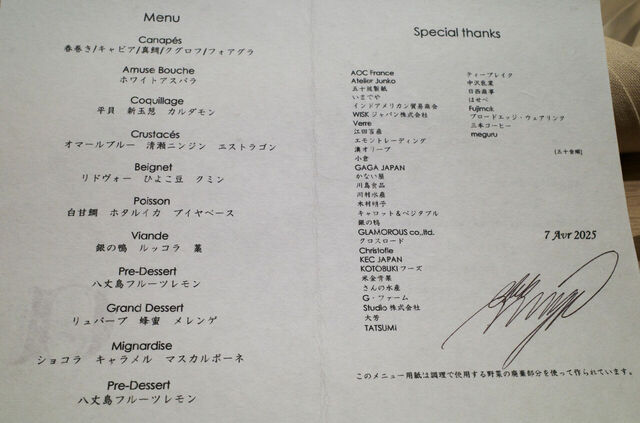 Menu
Canapés
春巻き/キャビア/真鯛/クグロフ/フォアグラ
Amuse Bouche
ホワイトアスパラ
Coquillage
平貝 新玉葱 カルダモン
Crustacés
オマールブルー 清瀬ニンジン エストラゴン
Beignet
リドヴォー ひよこ豆 クミン
Poisson
白甘鯛 ホタルイカ ブイヤベース
Viande
銀の鴨 ルッコラ 菫
Pre-Dessert
八丈島フルーツレモン
Grand Dessert
リュバーブ 蜂蜜 メレンゲ
Mignardise
ショコラ キャラメル マスカルポーネ
Pre-Dessert
八丈島フルーツレモン
Special thanks
AOC France
Atelier Junko
五十嵐製紙
いまでや
インドアメリカン貿易商会
WISK ジャパン株式会社
Verre
江田百産
エモントレーディング
漢オリーブ
小倉
GAGA JAPAN
かない屋
川島食品
川村水産
木村硝子
キャロット&ベジタブル
銀の鴨
GLAMOROUS co.,ltd.
クロスロード
Christofle
KEC JAPAN
KOTOBUKI フーズ
米金青果
さんの水産
G・ファーム
Studio 株式会社
大芳
TATSUMI
ティーブレイク
中沢乳業
日西商事
はせべ
Fujimak
ブロードエッジ・ウェアリンク
三本コーヒー
meguru
[五十音順]
7 Avr 2025
このメニュー用紙は調理で使用する野菜の廃棄部分を使って作られています。